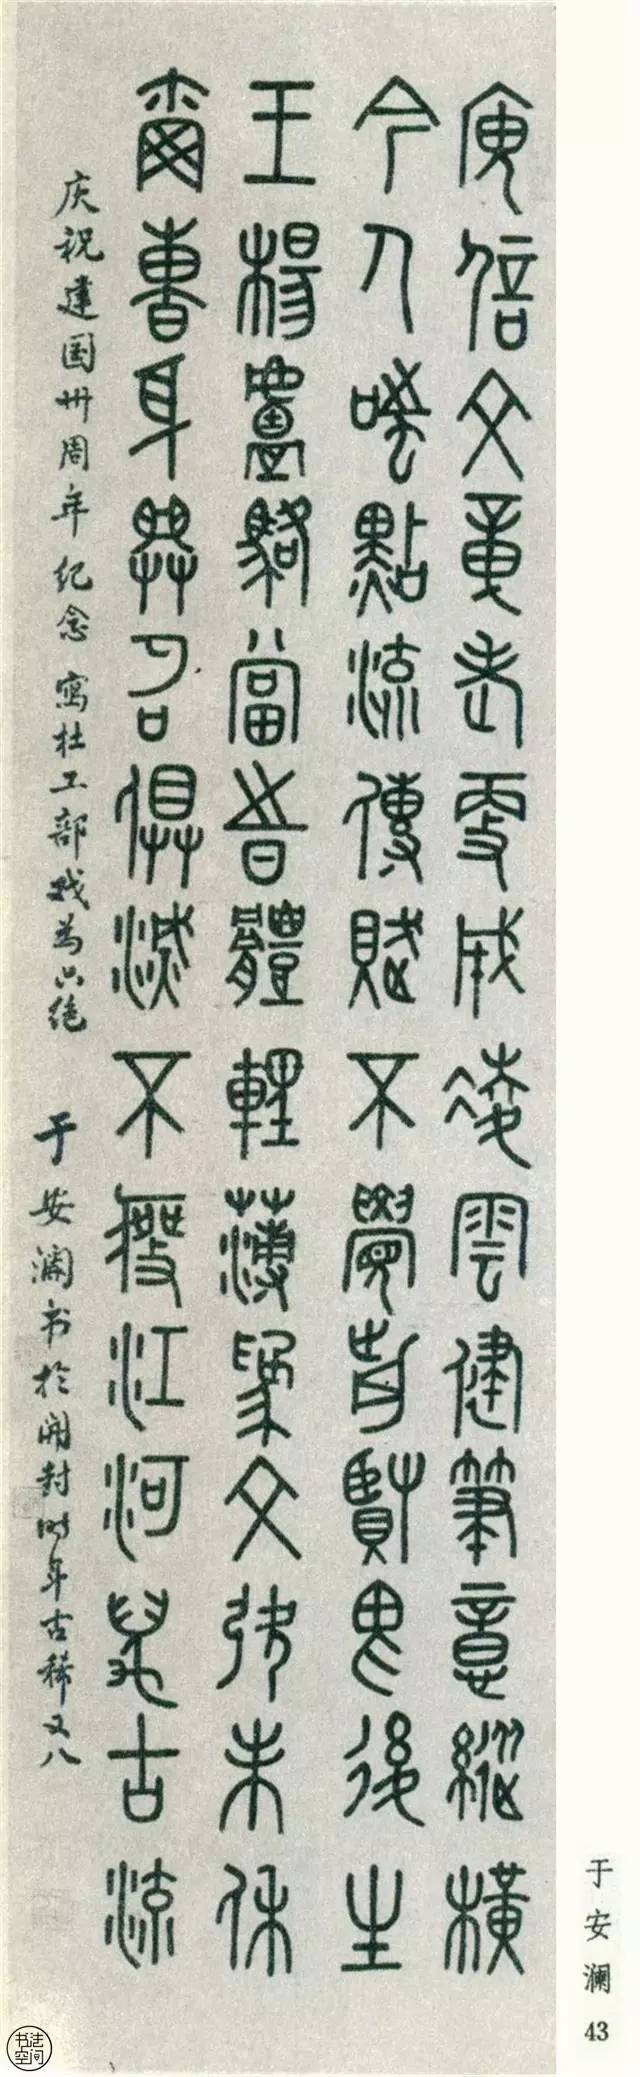 庾信文章老更成凌雲健筆意縱橫
今人嗤點流傳賦不覺前賢畏後生
王楊盧駱當旹體輕薄為文弞未休
爾曹身與名俱滅不廢江河萬古流
庆祝建国卅周年纪念 寫杜工部戏为六绝 于安澜书於開封时年古稀又八
于安澜 43
书法空间